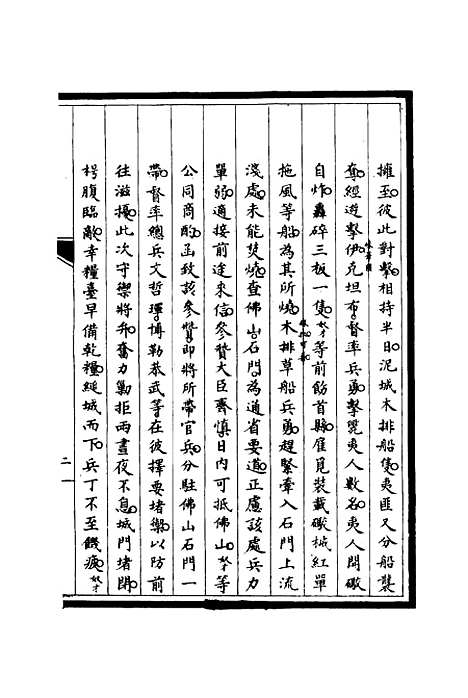 擁至彼此對擊相持半日泥城木排船隻夷匪又分船襲
奪經遊擊伊克坦布督率兵勇擊斃夷人數名夷人開礮
自炸轟碎三板一隻奴等前飭首縣雇覓裝載礮械紅單
拖風等船為其所燒木排草船兵勇趕緊牽入石門上流
淺處未能焚燒查佛山石門為通省要道正慮該處兵力
單弱適接前途來信參贊大臣齊慎日內可抵佛山奴等
公同商酌函致該參贊即將所帶官兵分駐佛山石門一
帶督率總兵文哲琿博勒恭武等在彼擇要堵禦以防前
往滋擾此次守禦將弁奮力勦拒兩晝夜不息城門堵閉
枵腹臨敵幸糧臺早備乾糧縋城而下兵丁不至饑疲奴才